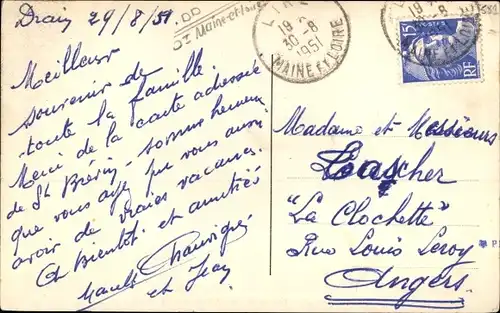 Drain 29/8/51.
Meilleur
souvenir de
toute la famille.
Merci de la carte adressée
de St Brévin - sommes heureux
que vous ayez pu vous aussi
avoir de vraies vacances.
A Bientôt et amitiés
Chauvigné
et Jean
DD
MAINE ET LOIRE
30-8
1951
15F
RF
Madame et Messieurs
Loascher
"La Clochette"
Rue Louis Leroy
Angers.